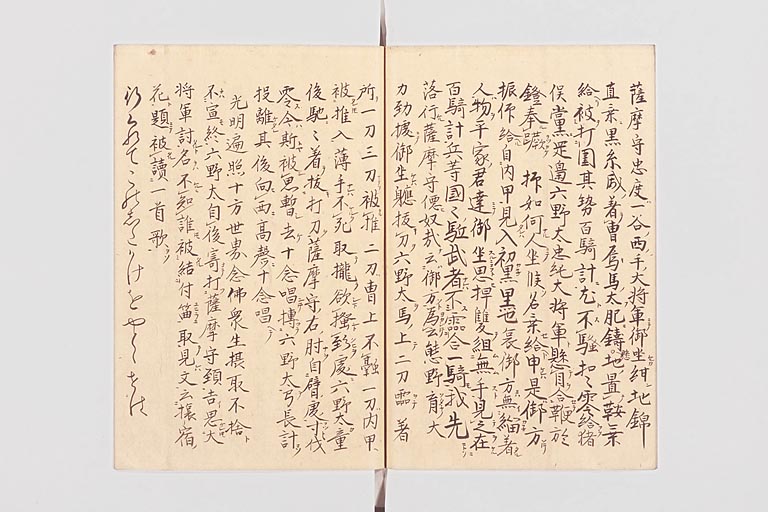 薩摩守忠度一谷西手大将軍御坐紺地錦
直垂黒糸威著冑馬太肥鋳地置鞍乗
給被打囲其勢百騎計尤不騒扣々零給猪
俣党岡邊六野太忠純大将軍懸目合鞭於
鐙奉 抑如何人坐候名乗給申是御方
振作給自内甲見入初黒里 御方無 著
人物平家君達御坐思押雙組無手見之在
百騎計兵等国々駈武者不零合一騎我先
落行薩摩守僧奴哉云御方為云熊野育大
力勁捷御坐 抜刀六野太馬上二刀零著
所一刀三刀被推二刀冑上不融一刀内甲
被推入薄手不死取攏欲掻頸處六野太童
後馳々著抜打刀薩摩守右肘自臂處寸伐
零今斯被思暫去十念唱摶六野太弓長計
投離其後向西高聲十念唱
光明遍照十方世界念佛衆生摂取不捨
不宣終六野太自後寄打薩摩守頸吉思大
将軍討名不知誰被結付笛取見文云旅宿
花題被讀一首歌
行くれてこのしたかけをやとゝせは